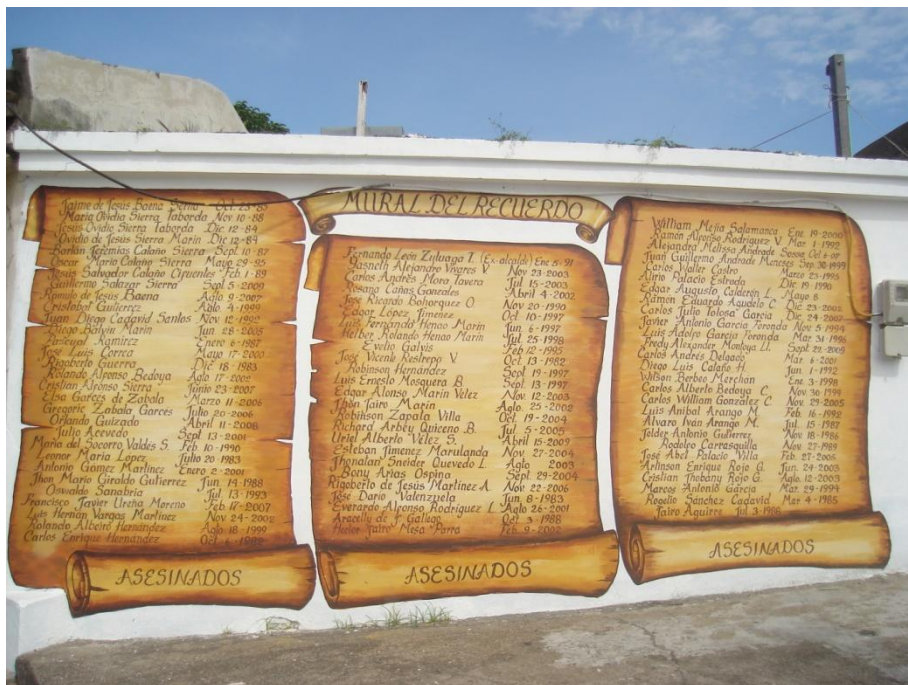 MURAL DEL RECUERDO
Jaime de Jesús Baena Serna Oct 23-83
Maria Ovidia Sierra Taborda Nov. 10-88
Jesús Ovidio Sierra Taborda Dic 12-84
Ovidio de Jesús Sierra Marín Dic 12-84
Jeremías Cataño Sierra Sept. 10-87
Oscar Mario Cataño Sierra Mayo 29-85
Jesús Salvador Cataño Cifuentes Feb 1-89
Guillermo Salazar Sierra Sept 5-2009
Rómulo de Jesús Baena Agto 9-2007
Cristobal Gutierrez Agto 4-1999
Juan Diego Cadavid Santos Nov 12-1992
Diego Marín Jun 28-2005
Pascual Ramírez Enero 6-1987
José Luis Correa Mayo 17-2000
Rigoberto Guerra Dic 18-1983
Rolando Alfonso Bedoya Agto 17-2002
Cristian Alfonso Sierra Junio 23-2007
Elsa Garcés de Zabala Marzo 11-2006
Gregoric Zabala Garcés Julio 20-2006
Orlando Guizado Abril 11-2008
Julio Acevedo Sept 13-2001
María del Socorro Valdés S. Feb 10-1996
Leonor Maria López Julio 20-1983
Antonio Gómez Martínez Enero 2-2001
Jhon Mario Giraldo Gutierrez Jun 14-1988
Oswaldo Sanabria Jul 13-1993
Francisco Javier Ureña Moreno Feb 17-2007
Luis Hernán Vargas Martínez Nov 24-2002
Rolando Albeiro Hernández Ago 18-1999
Carlos Enrique Hernández Oct
ASESINADOS
Fernando León Zuluaga I. (Ex-alcalde) Ene 5-91
Alejandro Vivares V Nov 23-2003
Carlos Andrés Mora Tavera Jul 15-2003
Rosana Cañas Gonzales Abril 4-2002
José Ricardo Bohorquez O Nov 20-1990
Edgar López Jimenez Oct 10-1997
Luis Fernando Henao Marín Jun 6-1997
Rolando Henao Marín Jul 25-1998
Evelio Galvis Feb 12-1995
José Vicente Restrepo V. Oct 13-1982
Robinson Hernández Sept 19-1997
Luis Ernesto Mosquera B. Sept. 13-1997
Edgar Alonso Marín Vélez Nov. 12-2003
Jhon Jairo Marín Agto. 25-2002
Robinson Zapata Villa Oct 19-2004
Richard Arbey Quiceno B. Jul 5-2005
Uriel Alberto Vélez S. Abril 15-2009
Esteban Jimenez Marulanda Nov 27-2004
Jhonatan Sneider Quevedo L. Agto 2003
Bony Arias Ospina Sept 29-2004
Rigoberto de Jesús Martínez A. Nov 22-2006
José Dario Valenzuela Jun 8-1983
Everardo Alfonso Rodríguez L Agto 26-2001
Aracelly de J. Gallego Oct 3-1988
Jairo Mesa Parra Feb. 9-2002
ASESINADOS
William Mejía Salamanca Ene 19-2000
Ramón Alfonso Rodríguez V. Mar 1-1992
Alejandra Melissa Andrade Sossa Oct 6-07
Juan Guillermo Andrade Meneses Sep 30 1999
Carlos Valler Castro Marzo 23-1995
Palacio Estrada Dic 19 1996
Edgar Augusto Calderón L Mayo 8
Ramon Eduardo Agudelo C Dic 23-2002
Carlos Julio Tolosa García Dic 24-2000
Javier Antonio García Foronda Nov 5 1994
Luis Adolfo García Foronda Mar 31-1996
Fredy Alexander Montoya U. Sept 22-2008
Carlos Andrés Delgado Mar 6-2001
Diego Luis Cataño H. Jun 1-1992
Wilson Berbeo Merchan Ene 3-1998
Carlos Alberto Bedoya C Nov 30 1994
Carlos William González C Nov 29-2005
Luis Anibal Arango M. Feb 16-1992
Alvaro Iván Arango M. Jul. 15-1987
Antonio Gutierrez Nov 18-1986
Rodolfo Carrasquilla Nov 27-1983
José Abel Palacio Villa Feb. 27-2006
Arlinson Enrique Rojo G. Jun 24-2003
Cristian Jhobany Rojo G Agto. 12-2003
Marcos Antonio García Mar 29-1994
Rogelio Sánchez Cadavid Mar 4-1985
Jairo Aguirre Jul 3-1986
ASESINADOS